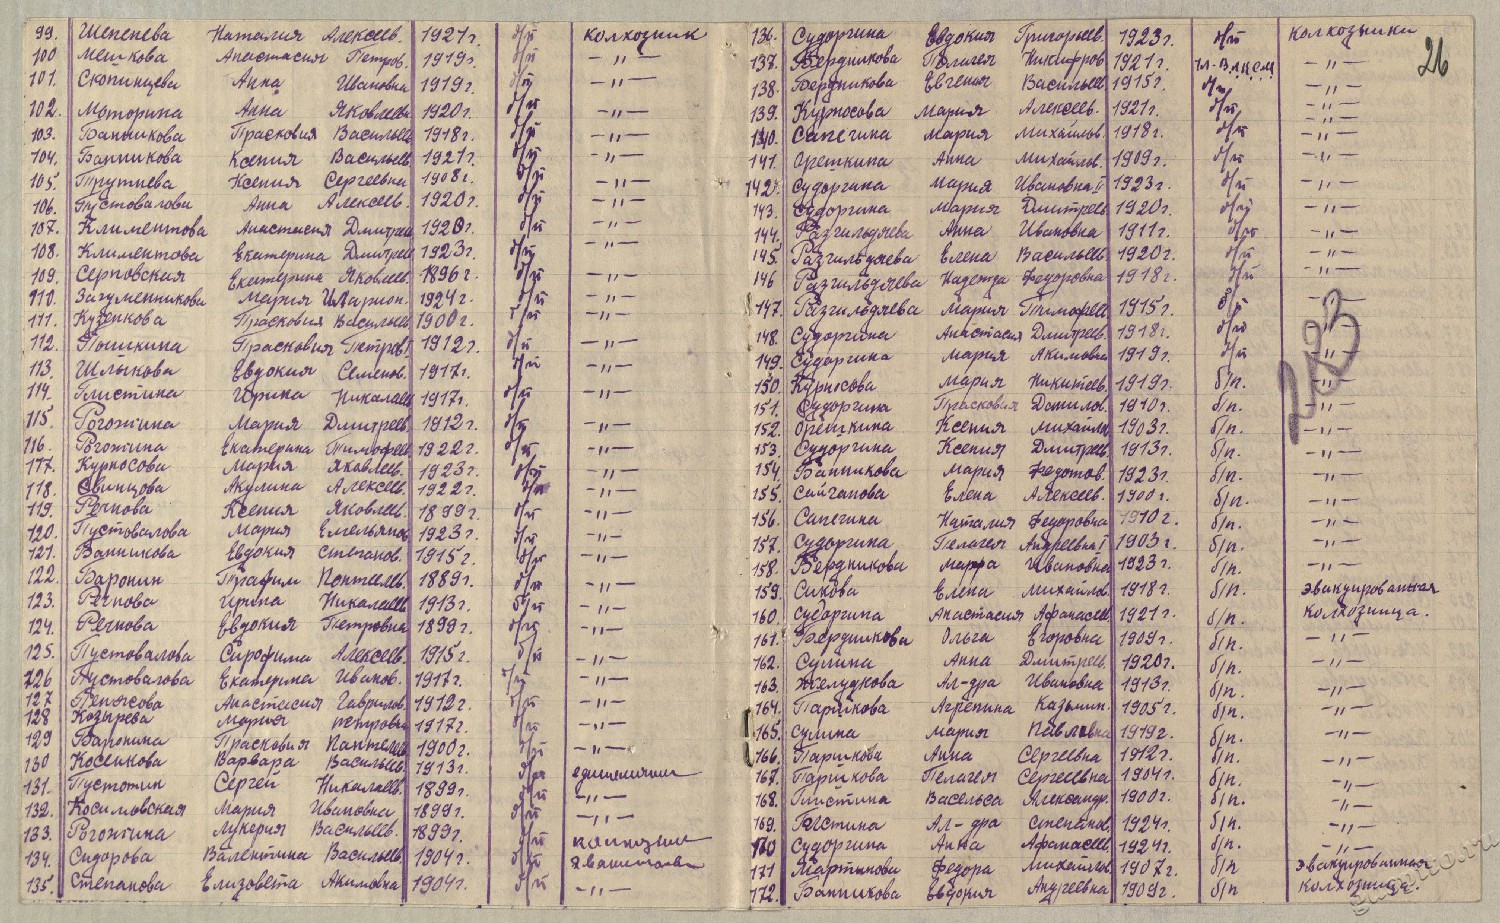 99. Шепенева Наталия Алексеев. 1921г. б/п колхозник
100 Мешкова Анастасия Петров. 1919г. б/п —"—
101. Скопинцева Анна Ивановна 1919г. б/п —"—
102. Моторина Анна Яковлевн 1920г. б/п —"—
103. Банникова Прасковия Васильев 1918г. б/п —"—
104. Банникова Ксения Васильев 1921г. б/п —"—
105. Трутнева Ксения Сергеевна 1908г. б/п —"—
106. Пустовалова Анна Алексеев. 1920г. б/п —"—
107. Климентова Анастасия Дмитриев 1920г. б/п —"—
108. Климентова Екатерина Дмитриев 1923г. б/п —"—
109. Серповская Екатерина Яковлев. 1896г. б/п —"—
110. Загуменникова Мария Иларион. 1924г. б/п —"—
111. Кузенкова Прасковия Васильев 1900г. б/п —"—
112. Прасковия Петров 1912г. б/п —"—
113. Шлыкова Евдокия Семенов. 1917г. б/п —"—
114. Глистина Ирина Николаев 1917г. б/п —"—
115. Рогожина Мария Дмитриев. 1912г. б/п —"—
116. Рогожина Екатерина Тимофеев 1922г. б/п —"—
117. Курносова Мария Яковлев. 1923г. б/п —"—
118. Свинцова Акулина Алексеев. 1922г. б/п —"—
119. Речнова Ксения Яковлев. 1899г. б/п —"—
120. Пустовалова Мария Емельянов 1923г. б/п —"—
121. Банникова Евдокия Степанов. 1915г. б/п —"—
122. Баронин Трафим Пантелев. 1889г. б/п —"—
123. Речнова Ирина Николаев 1913г. б/п —"—
124. Речнова Евдокия Петровна 1899г. б/п —"—
125. Пустовалова Сирофима Алексеев. 1915г. б/п —"—
126 Пустовалова Екатерина Иванов. 1917г. б/п —"—
127 Анастасия Гаврилов. 1912г. б/п —"—
128 Козырева Мария Петровн 1917г. б/п —"—
129 Баронина Прасковия Пантелев 1900г. б/п —"—
130 Косенкова Варвара Васильев 1913г. б/п —"—
131. Пустотин Сергей Николаев. 1899г. б/п единоличник
132. Мария Ивановна 1899г. б/п —"—
133. Рогожина Лукерия Васильев. 1899г. б/п —"—
134. Сидорова Валентина Васильев. 1904г. б/п
135. Степанова Елизовета Акимовна 1904г. б/п —"—
136. Судоргина Евдокия Григорьев. 1923г. б/п колхозники
26
137. Бердникова Пелагея Никифров 1921г. чл.ВЛКСМ —"—
138. Бердникова Евгения Васильев 1915г. б/п —"—
139. Курносова Мария Алексеев. 1921г. б/п —"—
140. Сапегина Мария Михайлов. 1918г. б/п —"—
141. Орешкина Анна Михайлов. 1909г. б/п —"—
142. Судоргина Мария Ивановна II 1923г. б/п —"—
143. Судоргина Мария Дмитриев 1920г. б/п —"—
144. Разгильдяева Анна Ивановна 1911г. б/п —"—
145. Разгильдяева Елена Васильев 1920г. б/п —"—
146 Разгильдяева Надежда Федоровна 1918г. б/п —"—
147. Разгильдяева Мария Тимофеев 1915г. б/п —"—
148. Судоргина Анастасия Дмитриев. 1918г. б/п —"—
149. Судоргина Мария Акимовна 1919г. б/п —"—
150. Курносова Мария Никитеев. 1919г. б/п. —"—
151. Судоргина Прасковия Данилов. 1910г. б/п. —"—
152. Орешкина Ксения Михайлов 1903г. б/п. —"—
153. Судоргина Ксения Дмитриев 1913г. б/п. —"—
154. Банникова Мария Федотов. 1923г. б/п. —"—
155. Сайганова Елена Алексеев. 1900г. б/п. —"—
156. Сапегина Наталия Федоровна 1910г. б/п. —"—
157. Судоргина Пелагея Андреевна I 1903г. б/п. —"—
158 Бердникова Марфа Ивановна 1923г. б/п. —"—
159. Сикова Елена Михайлов. 1918г. б/п. эвакуированная
160. Судоргина Анастасия Афанасев. 1921г. б/п. колхозница.
161. Бердникова Ольга Егоровна 1909г. б/п. —"—
162. Сулина Анна Дмитриев. 1920г. б/п. —"—
163. Желудкова Ал-дра Ивановна 1913г. б/п. —"—
164. Паршкова Агрепина Казьмин. 1905г. б/п. —"—
165. Сулина Мария Павловна 1919г. б/п. —"—
166. Паршкова Анна Сергеевна 1912г. б/п. —"—
167. Паршкова Пелагея Сергеевна 1904г. б/п. —"—
168. Глистина Васелиса Александр. 1900г. б/п. —"—
169. Ал-дра Степанов. 1924г. б/п. —"—
170 Судоргина Анна Афанасев. 1924г. б/п. —"—
171 Мартынова Федора Михайлов. 1907г. б/п эвакуированная
172. Банникова Евдокия Андреевна 1909г. б/п колхозница.